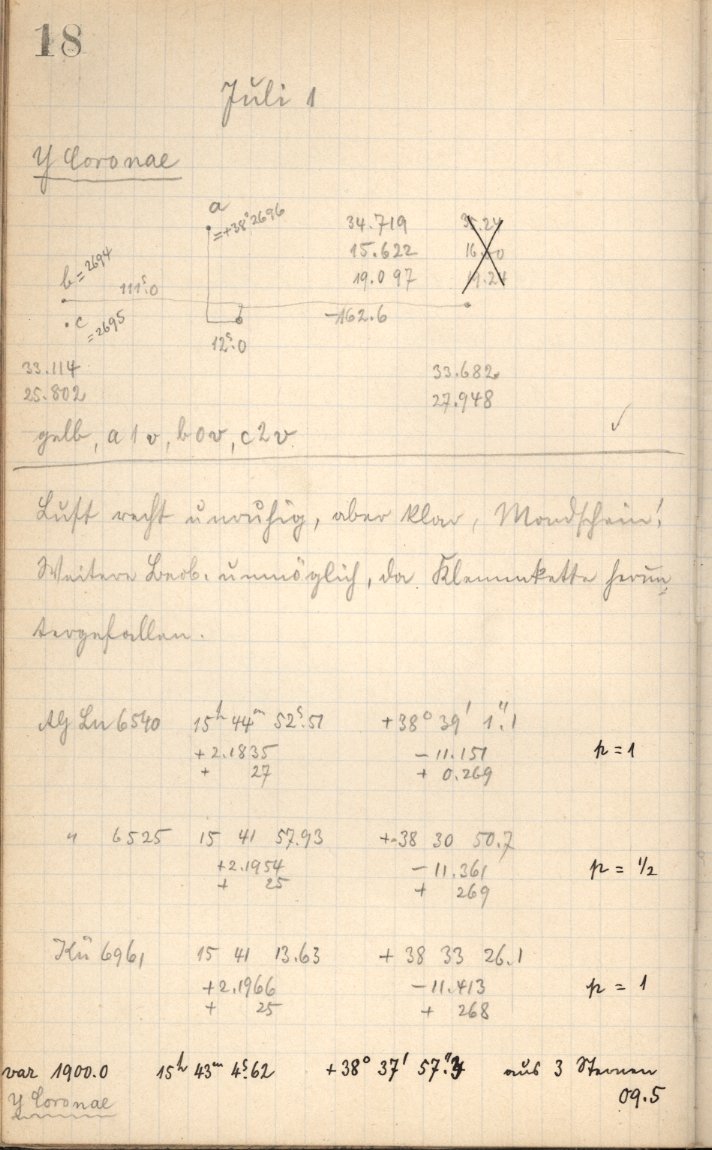 18
Juli 1
Y Coronae
a
=+38°2696
34.719
15.622
19.097
b = 2694
111ˢ.0
c
= 2695
12ˢ.0
-162.6
33.114
25.802
33.682
27.948
gelb, a 1 v, b 0 v, c 2 v
✓
Luft recht unruhig, aber klar, Mondschein!
Weitere Beob. unmöglich, da Klemmkette herun
tergefallen.
AG Lu 6540 15ʰ 44ᵐ 52ˢ.51 +38° 39' 1".1
+2.1835 -11.151 p = 1
+ 27 + 0.269
" 6525 15 41 57.93 +38 30 50.7
+2.1954 -11.361 p = 1/2
+ 25 + 269
Kü 6961 15 41 13.63 +38 33 26.1
+2.1966 -11.413 p = 1
+ 25 + 268
var 1900.0 15ʰ 43ᵐ 4ˢ.62 +38° 37' 57" aus 3 Sternen
Y Coronae 09.5